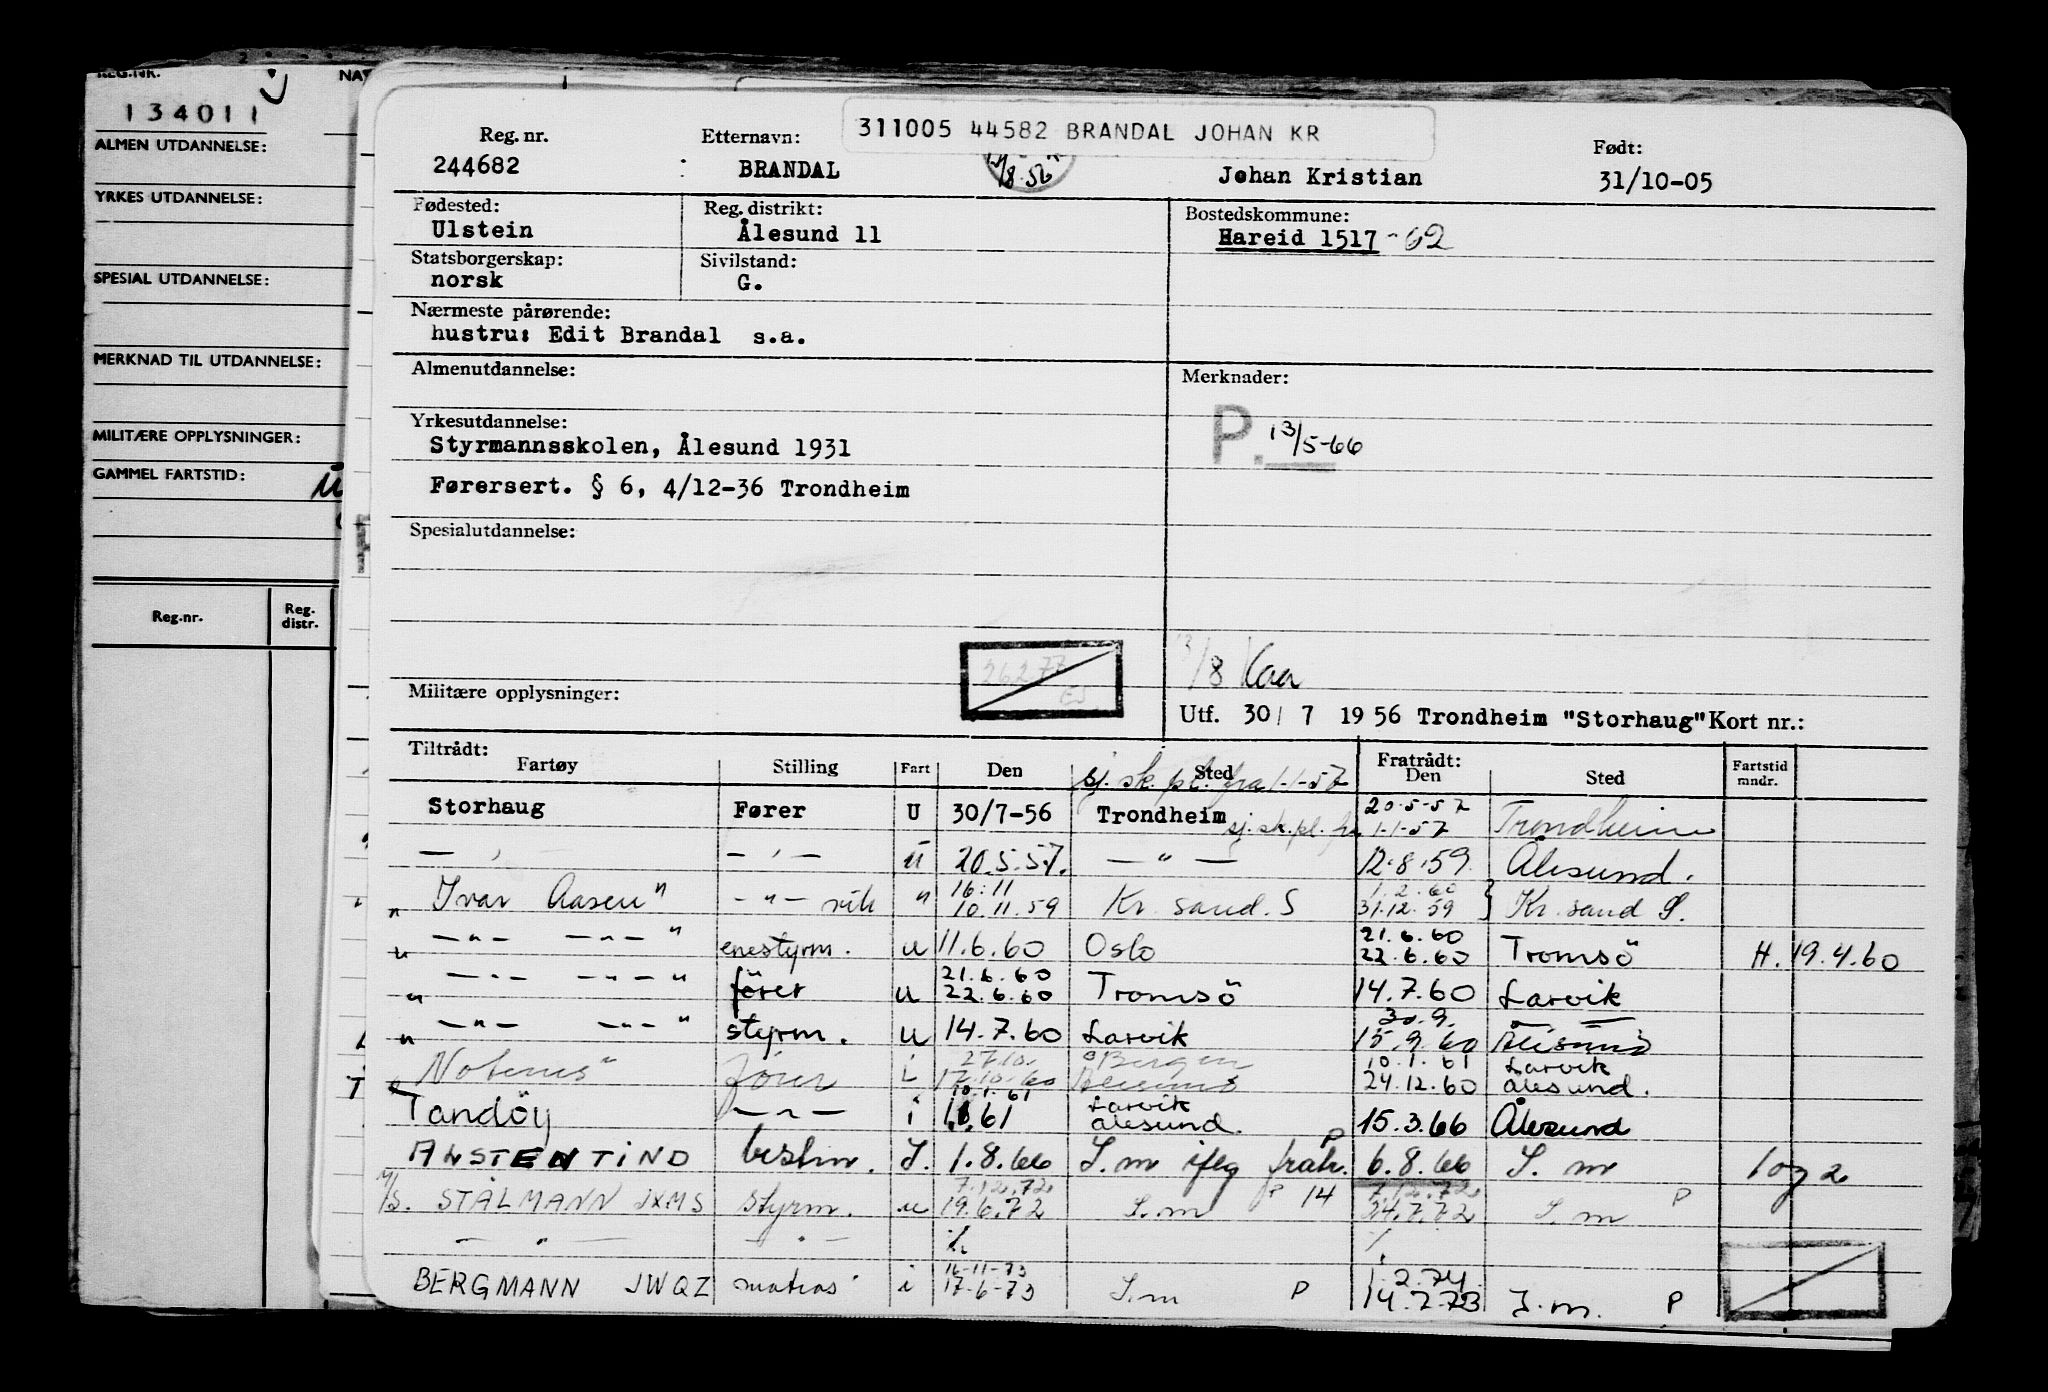 REG.NR.
134011
ALMEN UTDANNELSE:
YRKES UTDANNELSE:
SPESIAL UTDANNELSE:
MERKNAD TIL UTDANNELSE:
MILITÆRE OPPLYSNINGER:
GAMMEL FARTSTID:
Reg.nr. Reg. distr.
311005 44582 BRANDAL JOHAN KR
Reg. nr. Etternavn: Født:
244682 BRANDAL Johan Kristian 31/10-05
Fødested: Reg. distrikt: Bostedskommune:
Ulstein Ålesund 11 Hareid 1517 -62
Statsborgerskap: Sivilstand:
norsk G.
Nærmeste pårørende:
hustru: Edit Brandal s.a.
Almenutdannelse: Merknader:
P. 13/5-66
Yrkesutdannelse:
Styrmannsskolen, Ålesund 1931
Førersert. § 6, 4/12-36 Trondheim
Spesialutdannelse:
Militære opplysninger:
Utf. 30/ 7 1956 Trondheim "Storhaug" Kort nr.:
Tiltrådt: Fratrådt:
Fartøy Stilling Fart Den Sted Den Sted Fartstid mndr.
sj. sk. pl. fra 1-1-57
Storhaug Fører U 30/7-56 Trondheim sj. sk. pl. fra 20-5-57 1-1-57 Trondheim
— " — — " — u 20.5.57. — " — 12.8.59. Ålesund.
"Ivar Aasen" — " — vik " 16.11 10.11.59 Kr. sand. S 1.2.60 31.12.59 } Kr. sand S.
" — " — — " — " enestyrm. u 11.6.60 Oslo 21.6.60 22.6.60 Tromsö H. 19.4.60
" — " — — " — " förer u 21.6.60 22.6.60 Tromsö 14.7.60 Larvik
" — " — — " — " styrm. u 14.7.60 Larvik 30.9. 15.9.60 Ålesund
förer i 27.10. 17.10.60 Bergen Ålesund 10.1.61 24.12.60 Larvik Ålesund.
Tandöy — " — i 10.1.61 Larvik Ålesund. 15.3.66 Ålesund
ALSTENTIND bestm. I. 1.8.66 S.m iflg fratr. P 6.8.66 S.m 1 og 2
M/S. STÅLMANN JXMS styrm. u 7.12.72 19.6.72 S.m P 14 7.12.72 7.72 S.m P
— " — — " — %
BERGMANN JWQZ matros i 16-11-73 17-6-73 S.m P 1.2.74 14.7.73 S.m. P